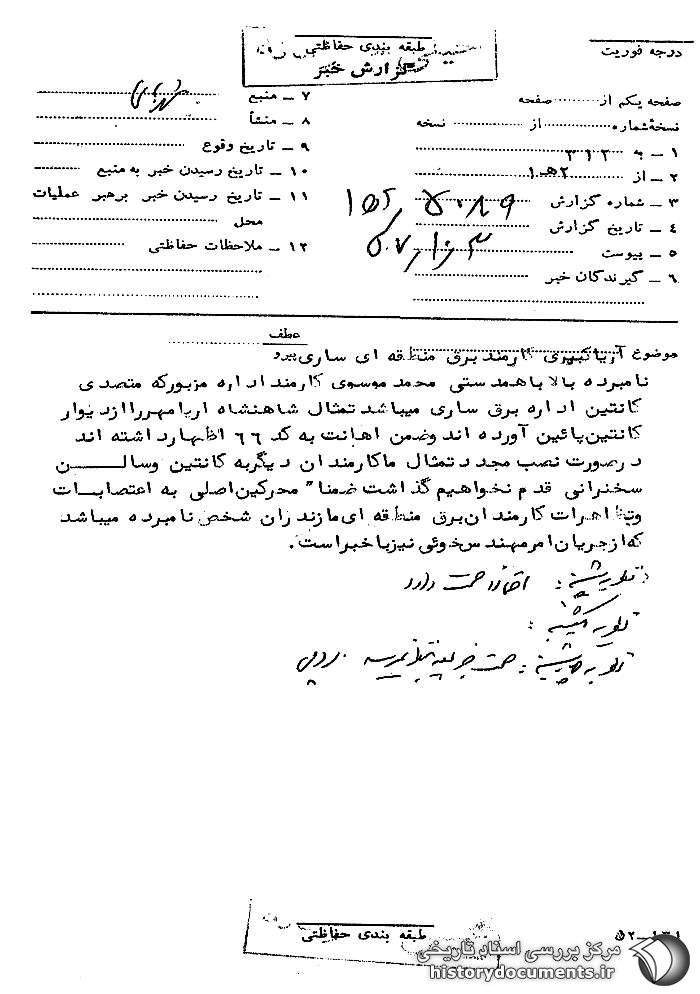 درجه فوریت
طبقه بندی حفاظتی
گزارش خبر
صفحه یکم از ............ صفحه
نسخهٔ شماره ............ از ............ نسخه
۱ ـ به ۳۱۲
۲ ـ از ۲هـ۱
۳ ـ شماره گزارش
۴ ـ تاریخ گزارش
۵ ـ پیوست
۶ ـ گیرندگان خبر
۷ ـ منبع
۸ ـ منشأ
۹ ـ تاریخ وقوع
۱۰ ـ تاریخ رسیدن خبر به منبع
۱۱ ـ تاریخ رسیدن خبر برهبر عملیات
محل
۱۲ ـ ملاحظات حفاظتی
موضوع آریا کبیری کارمند برق منطقه ای ساری
عطف
پیرو
نامبرده بالا با همدستی محمد موسوی کارمند اداره مزبور که متصدی
کانتین اداره برق ساری میباشد تمثال شاهنشاه اریامهر را از دیوار
کانتین پائین آورده اند وضمن اهانت به کد ۶۶ اظهار داشته اند
در صورت نصب مجدد تمثال ما کارمندان دیگر به کانتین وسالن
سخنرانی قدم نخواهیم گذاشت ضمنا" محرکین اصلی به اعتصابات
وتظاهرات کارمندان برق منطقه ای مازندران شخص نامبرده میباشد
که از جریان امر مهندس خوئی نیز با خبر است.
نظریه شنبه :
نظریه یکشنبه :
نظریه چهارشنبه :
طبقه بندی حفاظتی
۵۲ـ۱۳۱
مرکز بررسی اسناد تاریخی
historydocuments.ir